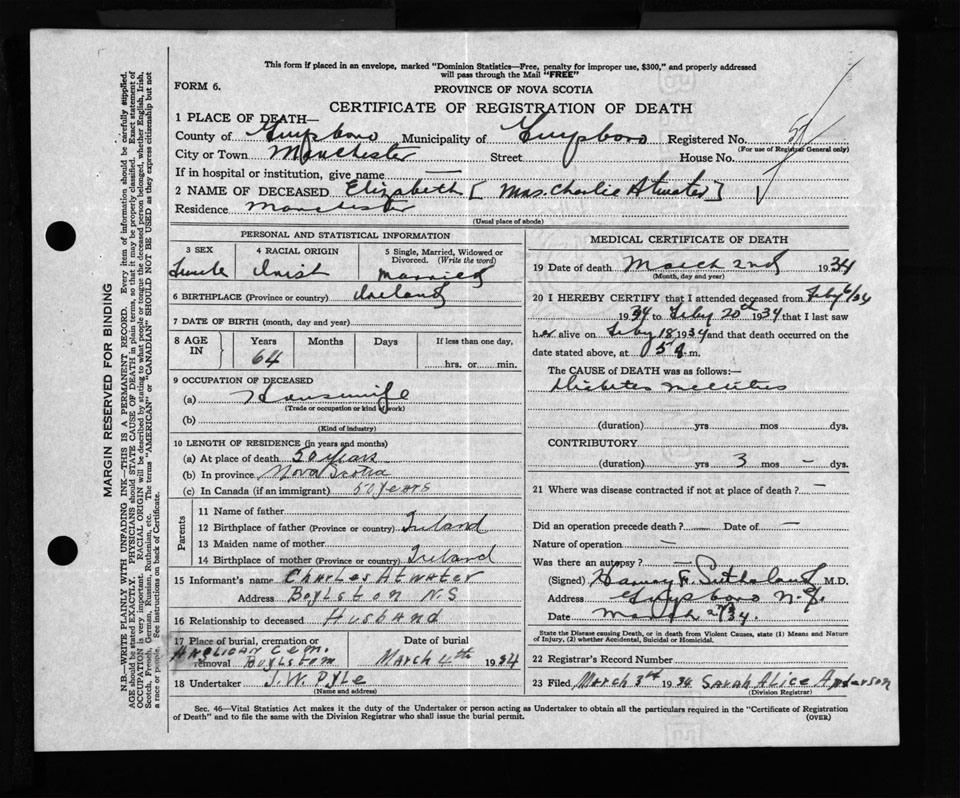 This form if placed in an envelope, marked "Dominion Statistics—Free, penalty for improper use, $300," and properly addressed
will pass through the Mail "FREE"
FORM 6.
PROVINCE OF NOVA SCOTIA
CERTIFICATE OF REGISTRATION OF DEATH
1 PLACE OF DEATH—
County of Guysboro Municipality of Guysboro Registered No.
(For use of Registrar General only)
City or Town Manchester Street House No.
If in hospital or institution, give name —
2 NAME OF DECEASED Elizabeth [Mrs. Charlie Atwater]
Residence Manchester
(Usual place of abode)
PERSONAL AND STATISTICAL INFORMATION
3 SEX 4 RACIAL ORIGIN 5 Single, Married, Widowed or
Divorced. (Write the word)
Female Irish Married
6 BIRTHPLACE (Province or country) Ireland
7 DATE OF BIRTH (month, day and year)
8 AGE IN Years Months Days If less than one day,
64 hrs. or min.
9 OCCUPATION OF DECEASED
(a) Housewife
(Trade or occupation or kind of work)
(b)
(Kind of industry)
10 LENGTH OF RESIDENCE (in years and months)
(a) At place of death 50 years
(b) In province Nova Scotia
(c) In Canada (if an immigrant) 50 years
Parents
11 Name of father
12 Birthplace of father (Province or country) Ireland
13 Maiden name of mother
14 Birthplace of mother (Province or country) Ireland
15 Informant's name Charles Atwater
Address Boylston N.S
16 Relationship to deceased Husband
17 Place of burial, cremation or removal Date of burial
Anglican Cem.
Boylston March 4th 1934
18 Undertaker J. W. Pyle
(Name and address)
MEDICAL CERTIFICATE OF DEATH
19 Date of death March 2nd 1934
(Month, day and year)
20 I HEREBY CERTIFY that I attended deceased from Feby 6/34
1934 to Feby 20th 1934 that I last saw
her alive on Feby 18 1934 and that death occurred on
date stated above, at 5 a.m.
The CAUSE of DEATH was as follows:—
Diabetes Mellitus
(duration) yrs mos dys.
CONTRIBUTORY
(duration) yrs 3 mos — dys.
21 Where was disease contracted if not at place of death? —
Did an operation precede death? — Date of —
Nature of operation —
Was there an autopsy? —
(Signed) Harvey F. Sutherland M.D.
Address Guysboro N.S.
Date
State the Disease causing Death, or in death from Violent Causes, state (1) Means and Nature
of Injury, (2) whether Accidental, Suicidal or Homicidal.
22 Registrar's Record Number
23 Filed March 3rd 1934 Sarah Alice Anderson
(Division Registrar)
Sec. 46—Vital Statistics Act makes it the duty of the Undertaker or person acting as Undertaker to obtain all the particulars required in the "Certificate of Registration
of Death" and to file the same with the Division Registrar who shall issue the burial permit. (OVER)
MARGIN RESERVED FOR BINDING
N.B.—WRITE PLAINLY WITH UNFADING INK—THIS IS A PERMANENT RECORD. Every item of information should be carefully supplied.
AGE should be stated EXACTLY. PHYSICIANS should STATE CAUSE OF DEATH in plain terms, so that it may be properly classified. Exact statement of
OCCUPATION is very important. RACIAL ORIGIN will be described by stating to what people or tongue the deceased person belonged, whether English, Irish,
Scotch, French, German, Russian, Ruthenian, etc. The terms "AMERICAN" or "CANADIAN" SHOULD NOT BE USED as they express citizenship but not
a race or people. See instructions on back of Certificate.